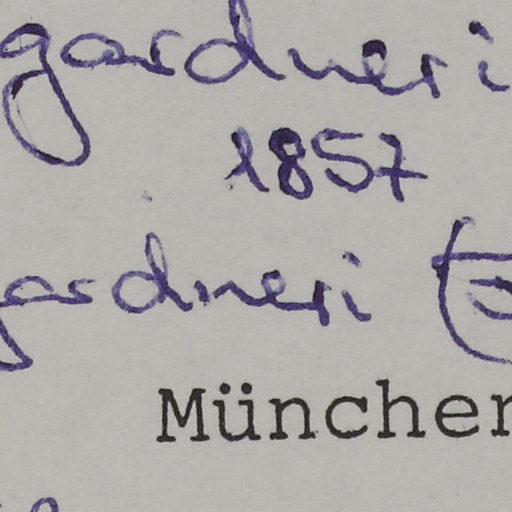 gardneri
1857
gardneri (
München